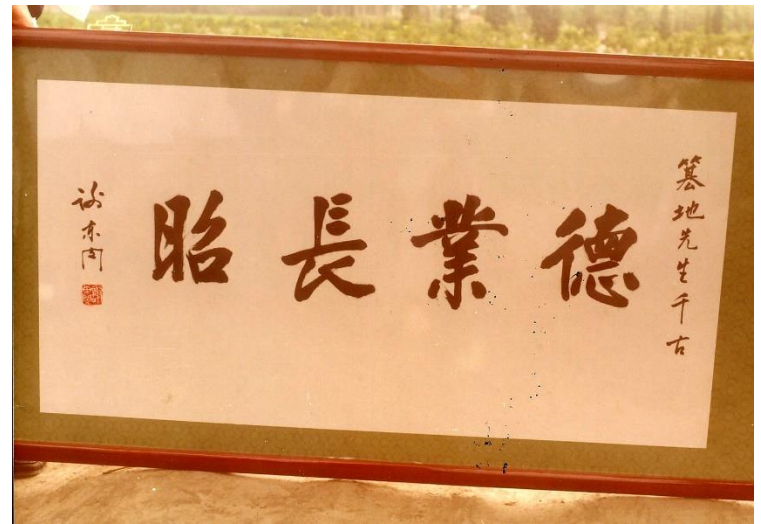 篡地先生千古
德業長昭
謝東閔